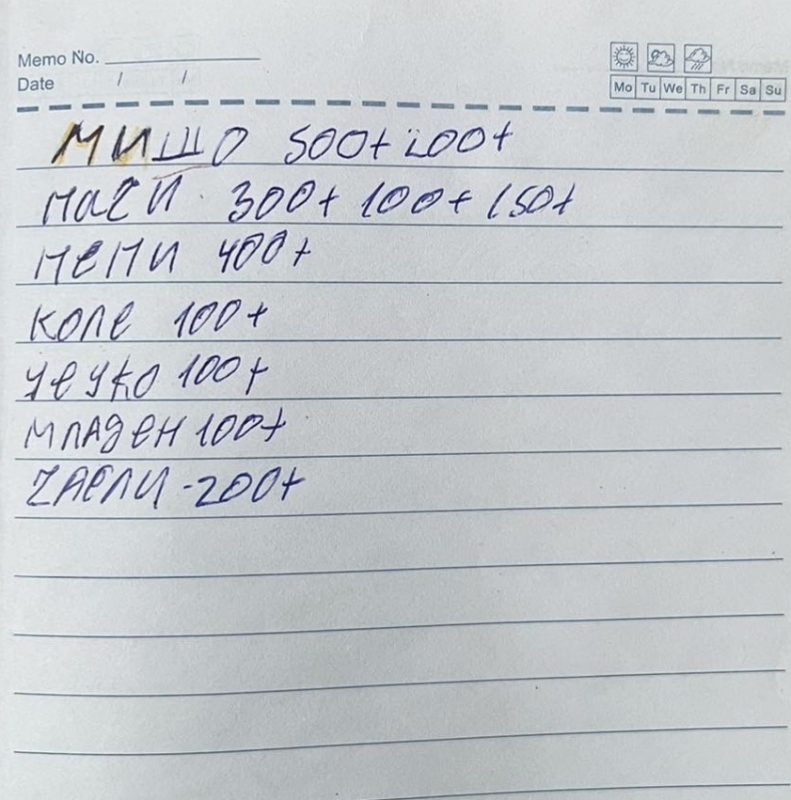 Memo No.
Date / /
Mo Tu We Th Fr Sa Su
МИШО 500+200+
МАГИ 300+100+150+
МЕМИ 400+
КОЛЕ 100+
100+
МЛАДЕН 100+
-200+